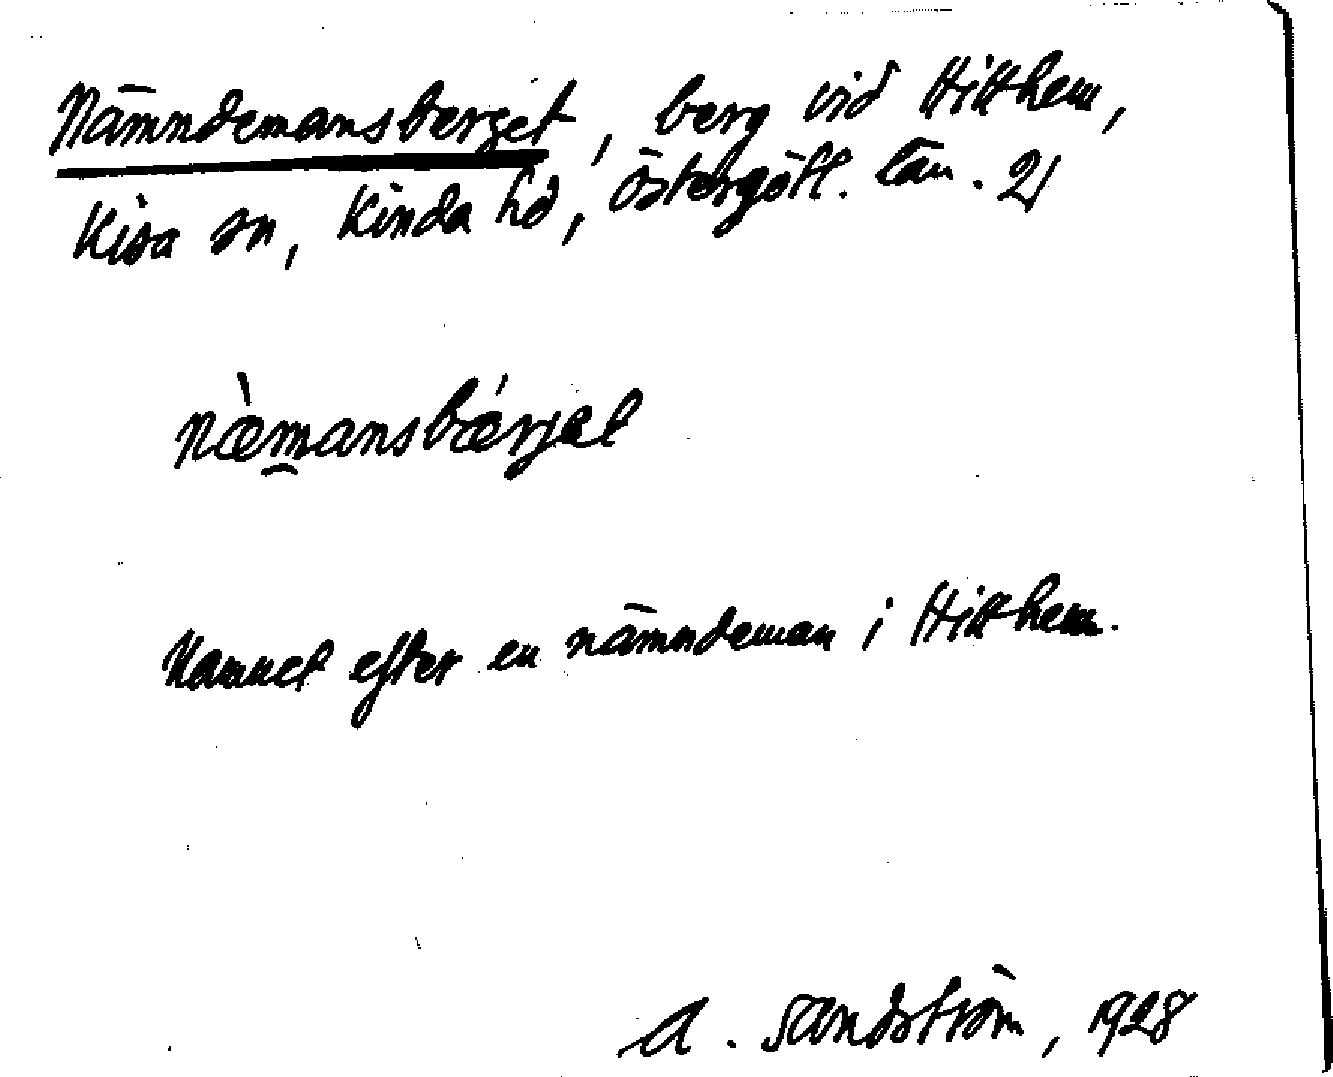 Nämndemansberget, berg vid Hitthem,
Kisa sn, Kinda hd, Östergötl. län. 21
næ̀mansbǽrjet
Namnet efter en nämndeman i Hitthem.
A. Sandström, 1928